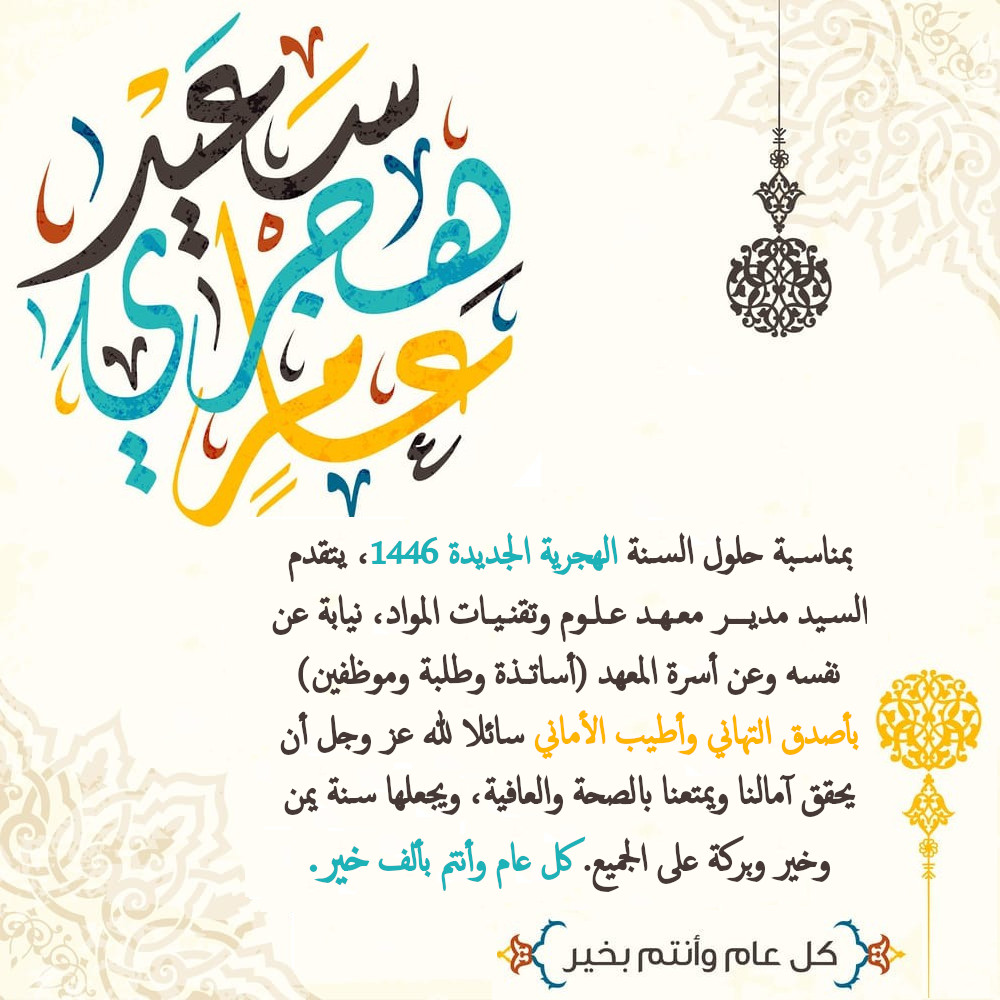 عام
هجري
سعيد
بمناسبة حلول السنة الهجرية الجديدة 1446، يتقدم
السيد مديـر معهد علوم وتقنيات المواد، نيابة عن
نفسه وعن أسرة المعهد (أساتذة وطلبة وموظفين)
بأصدق التهاني وأطيب الأماني سائلا لله عز وجل أن
يحقق آمالنا ويمتعنا بالصحة والعافية، ويجعلها سنة يمن
وخير وبركة على الجميع. كل عام وأنتم بألف خير.
كل عام وأنتم بخير